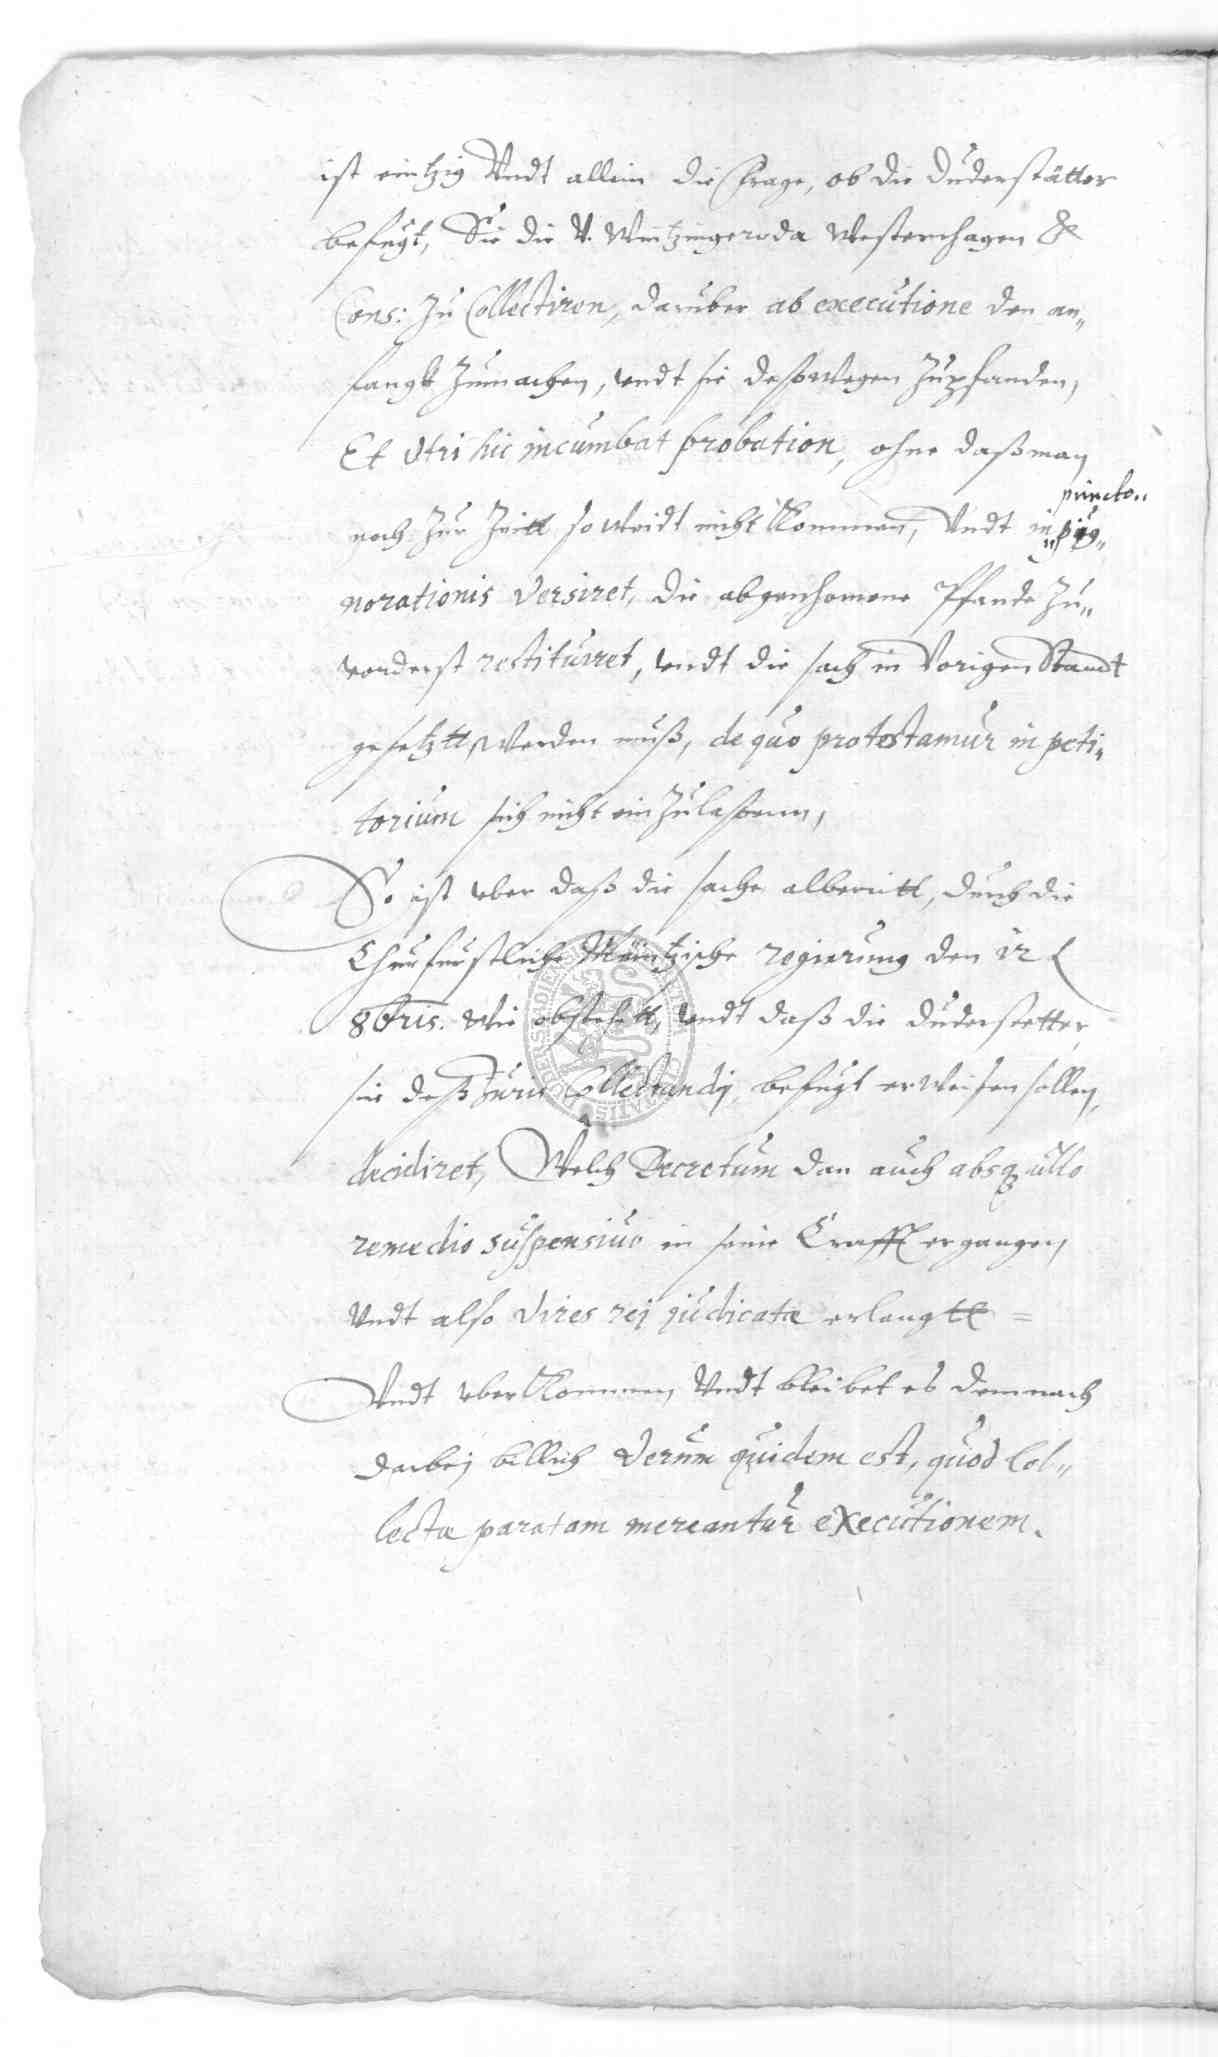 ist eintzig Vndt allein die Frage, ob die Duderstätter
befugt, Sie die V. Wintzingeroda Westernhagen &
Cons: Zu Collectiren, daruber ab executione den an„
fangk Zumachen, vndt sie deßwegen Zupfanden,
Et Vtri hic incumbat probation, ohne daß man
noch Zur Zeitt so weidt nicht kommen, Vndt in puncto pig„
norationis Versiret, die abgenhomene Pfande Zu„
vorderst restituiret, vndt die sach in Vorigen Standt
gesetztt werden muß, de quo protestamur in peti„
torium sich nicht ein Zulaßenn,
So ist vber daß die sache albereitt, durch die
Churfurstliche Mäintzische regierung den 12
8bris. wie obstehett, vndt daß die Duderstetter
sie deß Juris Collectandj befugt erweisen sollen,
decidiret, Welch Decretum dan auch absq ullo
remedio suspensiuo in seine Crafft ergangen,
Vndt also Vires rej judicatæ erlangtt =
Vndt vberkommen, Vndt bleibet es demnach
darbej billich Verum quidem est, quod Col„
lectæ paratam mereantur executionem.